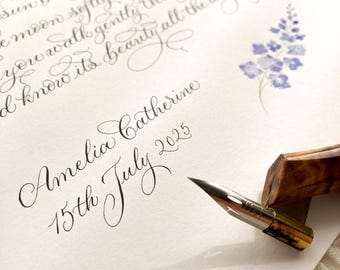 sun b
e moon softly
you walk gently th
d know its beauty all the
Amelia Catherine
15th July 2025